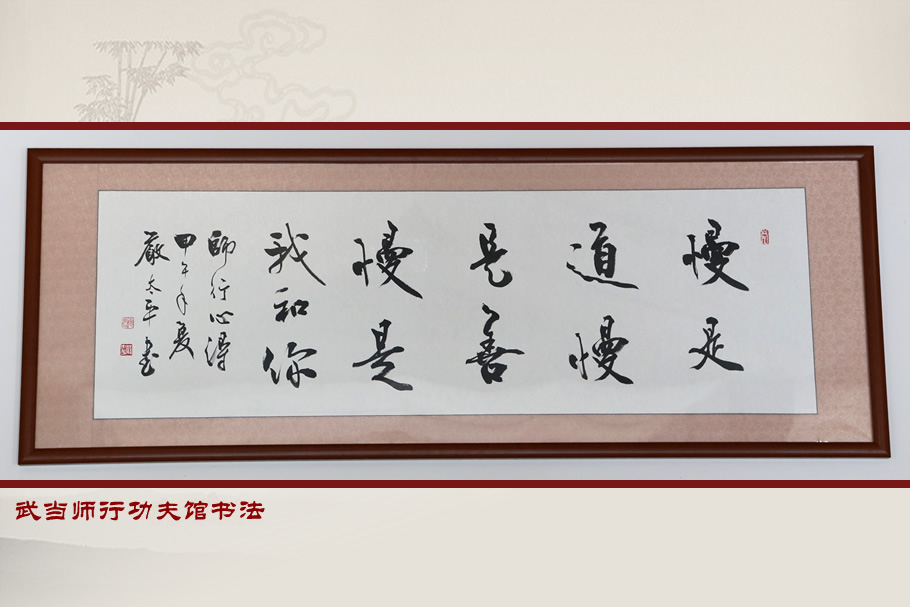 慢是
道慢
是善
慢是
我和你
師行心得
甲午年夏
嚴太平書
武当师行功夫馆书法